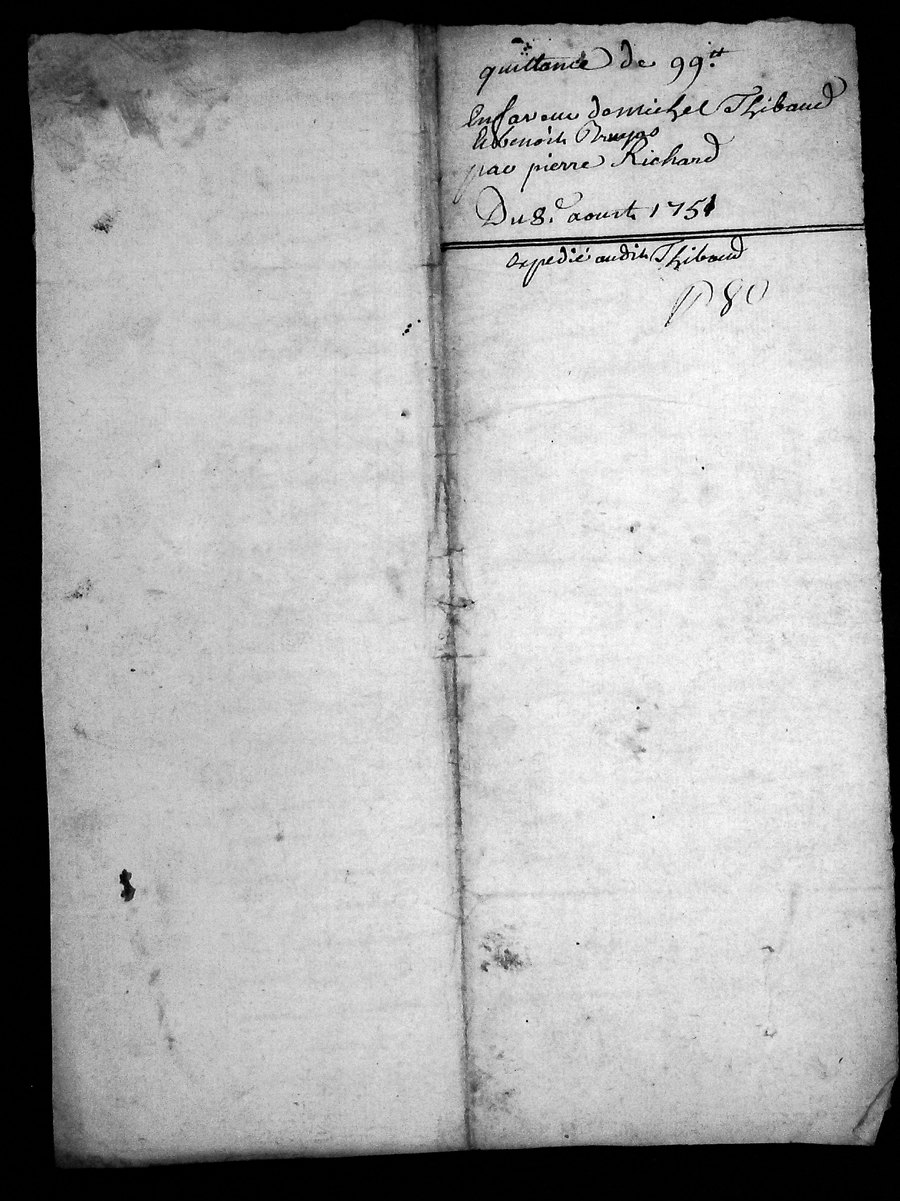 quittance de 99ᵗᵗ
En faveur de michel Thibaud
et benoit
par pierre Richard
Du 8.ᵉ aoust 1751
expedié audit Thibaud
80